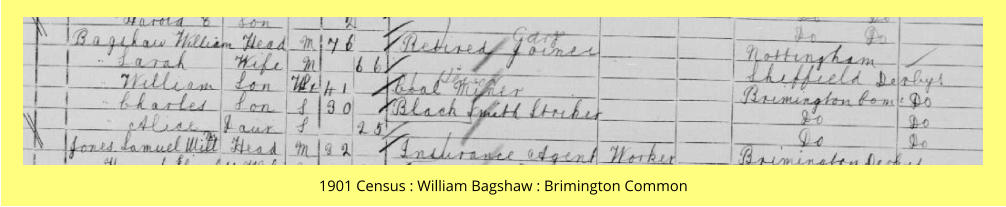 Harold E Son 2 Do Do
Bagshaw William Head M 76 Retired Joiner Nottingham
" Sarah Wife M 66 Sheffield
" William Son 41 Coal Miner Brimington Com: Do
" Charles Son S 30 Black Smith Striker Do Do
" Alice Daur S 25 Do Do
Jones Samuel Head M 32 Insurance Agent Worker Brimington
1901 Census : William Bagshaw : Brimington Common